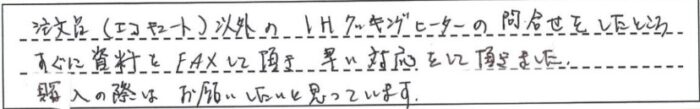 注文品(エコキュート)以外の IHクッキングヒーターの問合せをしたところ
すぐに資料をFAXして頂き 早い対応をして頂きました.
購入の際は お願いしたいと思っています.